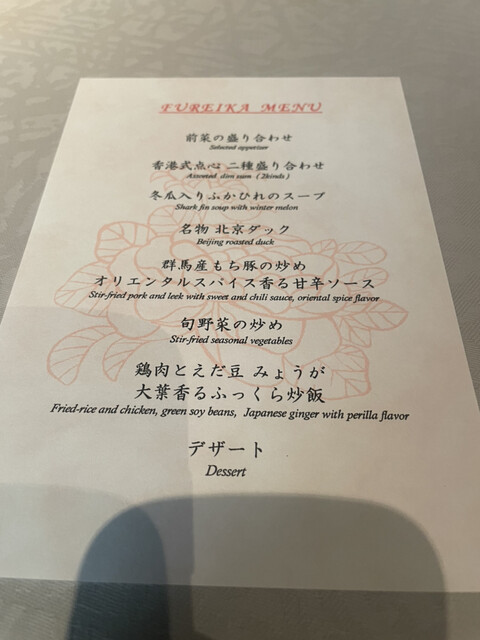 FUREIKA MENU
前菜の盛り合わせ
Selected appetizer
香港式点心 二種盛り合わせ
Assorted dim sum (2kinds)
冬瓜入りふかひれのスープ
Shark fin soup with winter melon
名物 北京ダック
Beijing roasted duck
群馬産もち豚の炒め
オリエンタルスパイス香る甘辛ソース
Stir-fried pork and leek with sweet and chili sauce, oriental spice flavor
旬野菜の炒め
Stir-fried seasonal vegetables
鶏肉とえだ豆 みょうが
大葉香るふっくら炒飯
Fried-rice and chicken, green soy beans, Japanese ginger with perilla flavor
デザート
Dessert